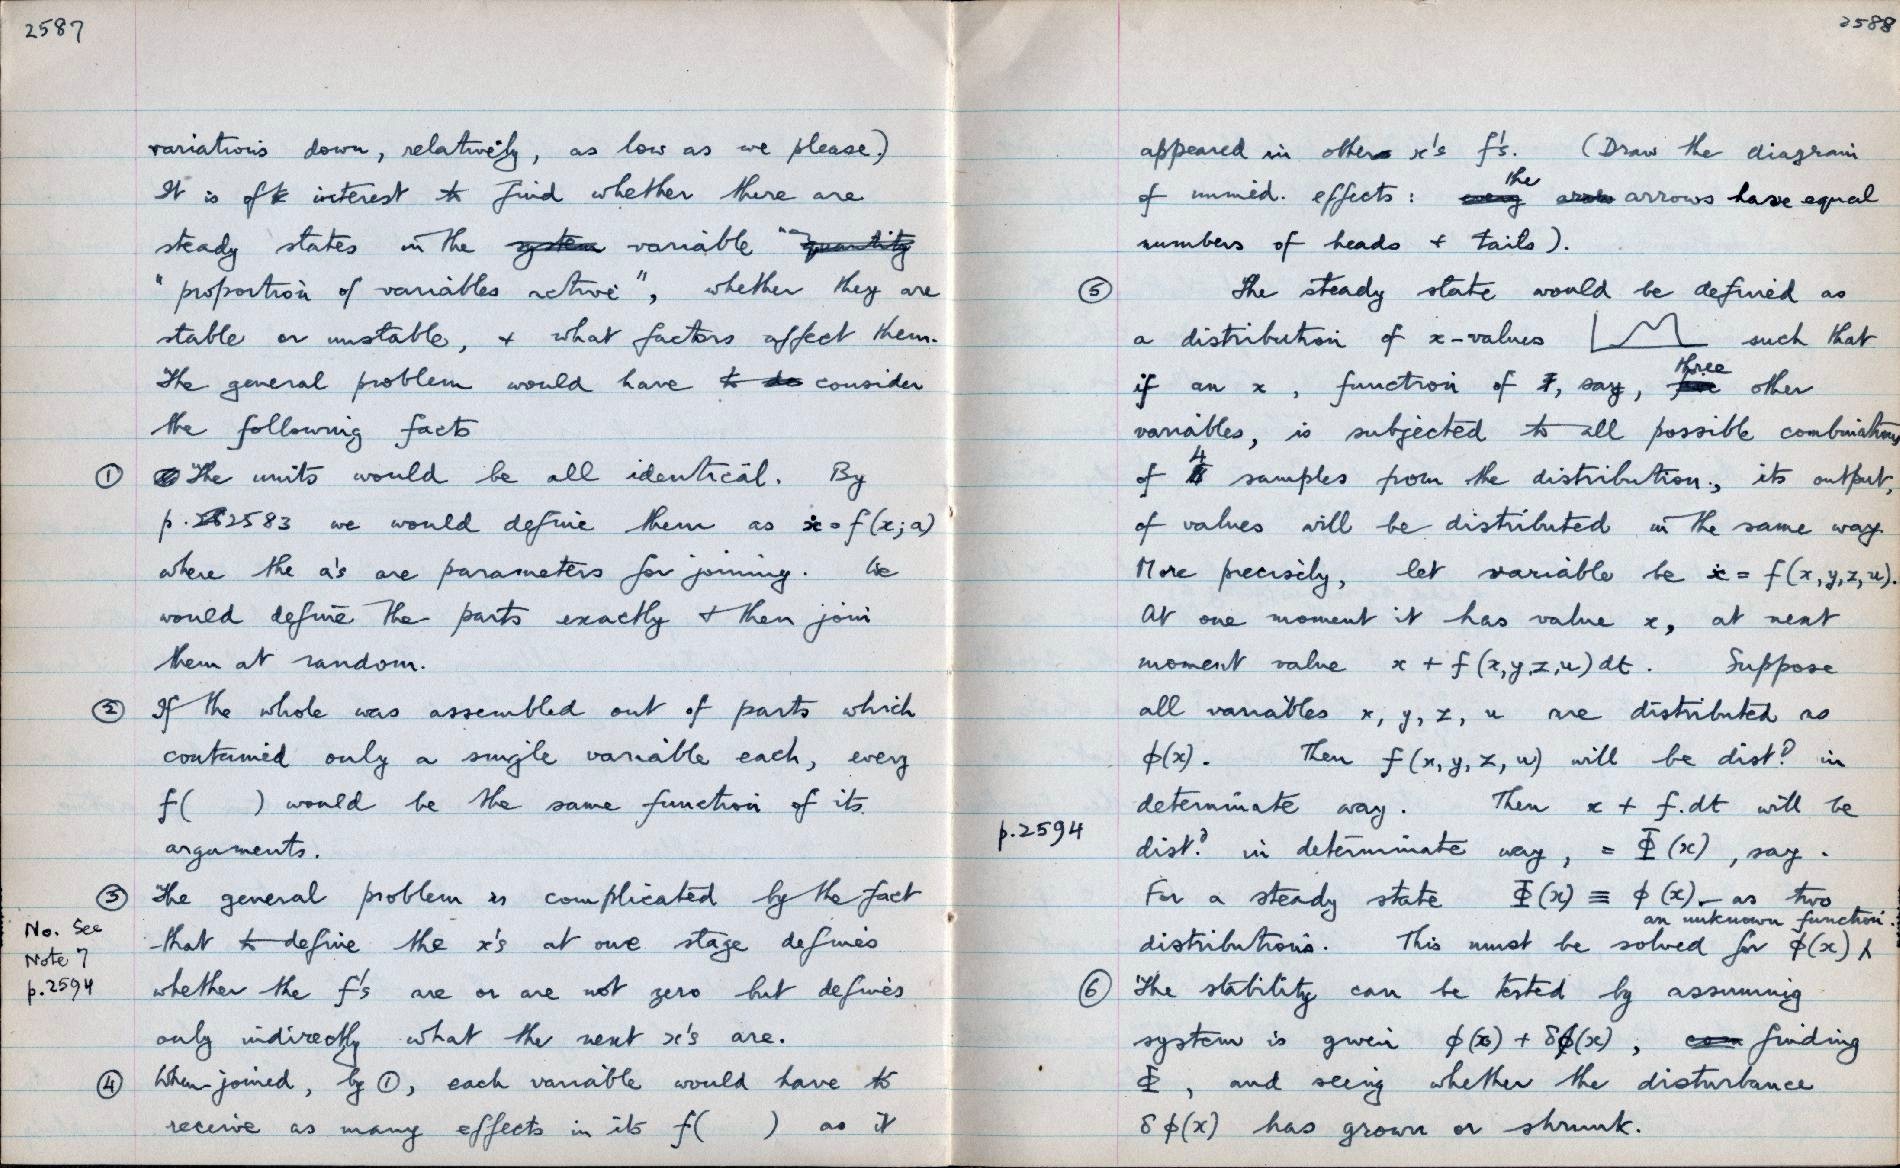 2587
variations down, relatively, as low as we please.)
It is of interest to find whether there are
steady states in the system variable "quantity
"proportion of variables active", whether they are
stable or unstable, + what factors affect them.
The general problem would have to do consider
the following facts
① The units would be all identical. By
p. 2583 we would define them as ẋ = f(x; a)
where the a's are parameters for joining. We
would define the parts exactly + then join
them at random.
② If the whole was assembled out of parts which
contained only a single variable each, every
f( ) would be the same function of its
arguments.
③ The general problem is complicated by the fact
No. See
that to define the x's at one stage defines
Note 7
p.2594
whether the f's are or are not zero but defines
only indirectly what the next x's are.
④ When joined, by ①, each variable would have to
receive as many effects in its f( ) as it
2588
appeared in other x's f's. (Draw the diagram
of immed. effects: every the arrows have equal
numbers of heads + tails).
⑤ The steady state would be defined as
a distribution of x-values such that
if an x, function of, say, three other
variables, is subjected to all possible combinations
of 4 samples from the distribution, its output,
of values will be distributed in the same way.
More precisely, let variable be ẋ = f(x,y,z,u).
At one moment it has value x, at next
moment value x + f(x,y,z,u)dt. Suppose
all variables x, y, z, u are distributed as
ϕ(x). Then f(x,y,z,u) will be distd in
determinate way. Then x + f.dt will be
p.2594
distd in determinate way, = Φ(x), say.
For a steady state Φ(x) ≡ ϕ(x) - as two
an unknown function.
distributions. This must be solved for ϕ(x) ⁁
⑥ The stability can be tested by assuming
system is given ϕ(x) + δϕ(x), com finding
Φ, and seeing whether the disturbance
δϕ(x) has grown or shrunk.